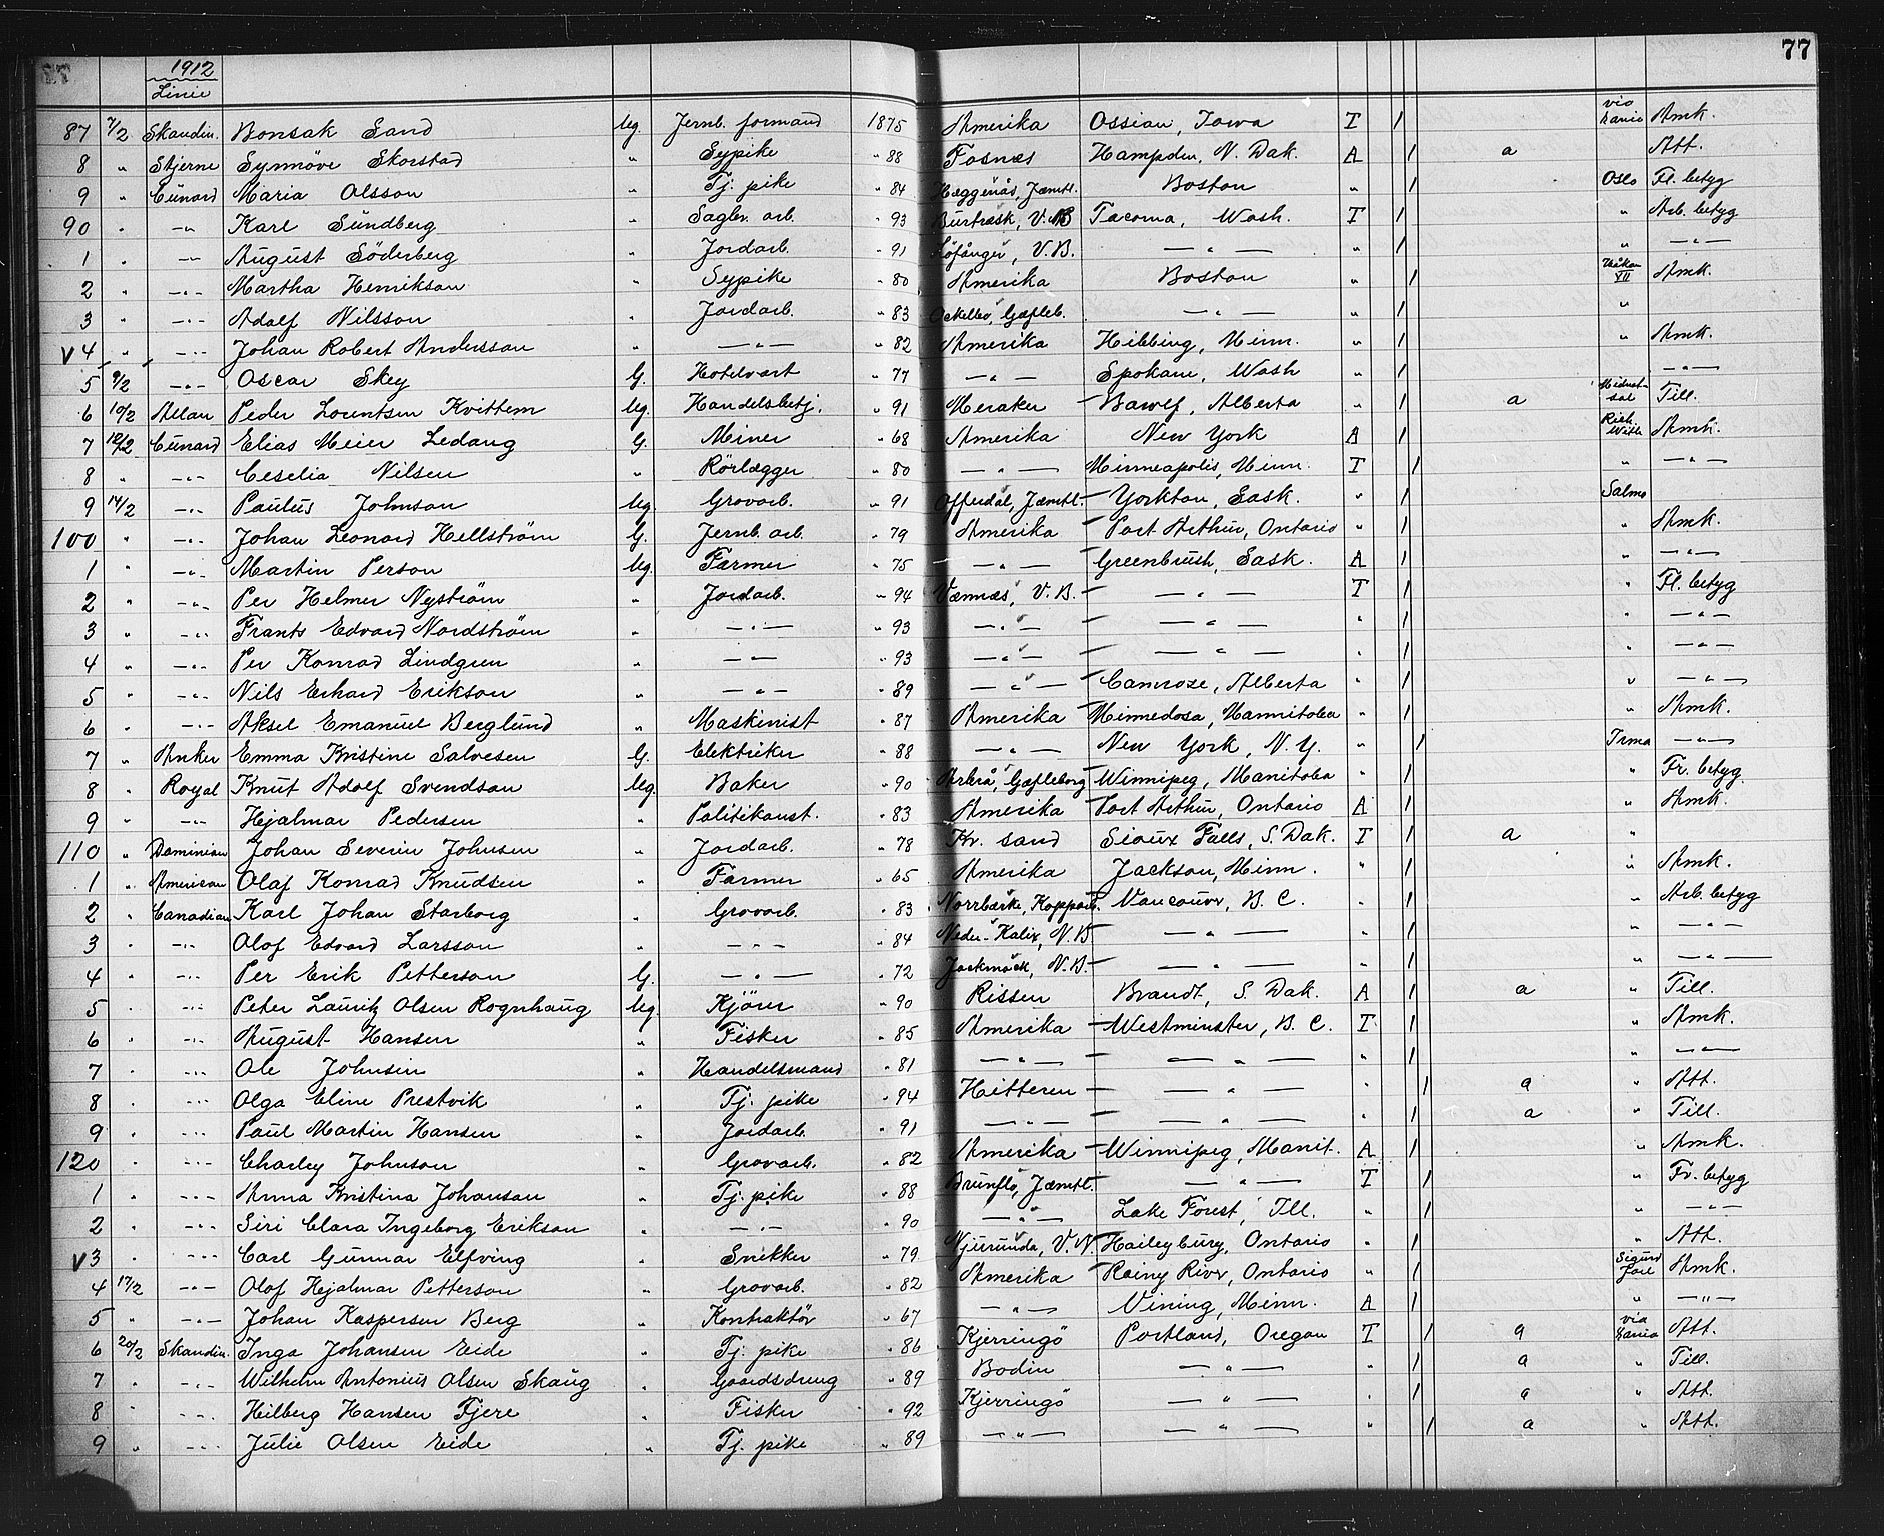 77
1912
Linie
87 7/2 Skandin. Bonsak Sand Ug. Jernb. formand 1875 Amerika Ossian, Iowa T 1 via Xania Amk.
8 " Stjerne Synnöve Skorstad " Sypike " 88 Fosnæs Hampden, N. Dak. A 1 a Att.
9 " Cunard Maria Olsson " Tj. pike " 84 Häggenås, Jæmtl. Boston " 1 Oslo Fl. betyg
90 " -"- Karl Sundberg " Sagbr. arb. " 93 Burtræsk, V. B Tacoma, Wash. T 1 " Arb. betyg
1 " -"- August Söderberg " Jordarb. " 91 Löfånger, V.B. -"- " 1 " -"-
2 " -"- Martha Henrikson " Sypike " 80 Amerika Boston " 1 Håkon VII Amk.
3 " -"- Adolf Nilsson " Jordarb. " 83 Ockelbo, Gæfleb. -"- " 1 "
V 4 " -"- Johan Robert Andersson " -"- " 82 Amerika Hibbing, Minn. " 1 " Amk.
5 9/2 -"- Oscar Skey G. Hotelvært " 77 -"- Spokane, Wash " 1 -"-
6 10/2 Allan Peder Lorentsen Kvittem Ug. Handelsbetj. " 91 Meraker Bawlf, Alberta " 1 a Till.
7 12/2 Cunard Elias Meier Ledang G. Miner " 68 Amerika New York A 1 Rich. With Amk.
8 " -"- Ceselia Nilsen " Rörlægger " 80 -"- Minneapolis, Minn. T 1 " -"-
9 14/2 -"- Paulus Johnson Ug. Grovarb. " 91 Offerdal, Jæmtl. Yorkton, Sask. " 1 Salmo
100 " -"- Johan Leonard Hellström G. Jernb. arb. " 79 Amerika Port Arthur, Ontario " 1 " Amk.
1 " -"- Martin Person Ug. Farmer " 75 -"- Greenbush, Sask. A 1 " -"-
2 " -"- Per Helmer Nyström " Jordarb. " 94 Vænnæs, V. B. -"- T 1 " Fl. betyg
3 " -"- Frants Edvard Nordström " -"- " 93 -"- -"- " 1 " -"-
4 " -"- Per Konrad Lindgren " -"- " 93 -"- -"- " 1 " -"-
5 " -"- Nils Erhard Erikson " -"- " 89 -"- Camrose, Alberta " 1 " -"-
6 " -"- Aksel Emanuel Berglund " Maskinist " 87 Amerika Minnedosa, Mannitoba " 1 " Amk.
7 " Anker Emma Kristine Salvesen G. Elektriker " 88 -"- New York, N.Y. " 1 Irma -"-
8 " Royal Knut Adolf Svendsen Ug. Baker " 90 Arbrå, Gæfleborg Winnipeg, Manitoba " 1 " Fr. betyg
9 " -"- Hjalmar Pedersen " Politikonst. " 83 Amerika Port Arthur, Ontario A 1 " Amk.
110 " Dominion Johan Severin Johnsen " Jordarb. " 78 Kr. sand Sioux Falls, S. Dak. T 1 a "
1 " American Olaf Konrad Knudsen " Farmer " 65 Amerika Jackson, Minn. " 1 " Amk.
2 " Canadian Karl Johan Starborg " Grovarb. " 83 Norrbærke, Kopparb. Vancouver, B. C. " 1 " Arb. betyg
3 " -"- Olof Edvard Larsson " -"- " 84 Neder-Kalix, N. B -"- " 1 " -"-
4 " -"- Per Erik Petterson G. -"- " 72 Jockmock, N.B. -"- " 1 " -"-
5 " -"- Peter Lauritz Olsen Rognhaug Ug. Kjörer " 90 Rissen Brandt, S. Dak. A 1 a " Till.
6 " -"- August Hansen " Fisker " 85 Amerika Westminster, B. C. T 1 " Amk.
7 " -"- Ole Johnsen " Handelsmand " 81 -"- -"- " 1 " -"-
8 " -"- Olga Eline Prestvik " Tj. pike " 94 Hitteren -"- " 1 a " Att.
9 " -"- Paul Martin Hansen " Jordarb. " 91 -"- -"- " 1 a " Till.
120 " -"- Charley Johnson " Grovarb. " 82 Amerika Winnipeg, Manit. A 1 " Amk.
1 " -"- Anna Kristina Johanson " Tj. pike " 88 Brunflo, Jæmtl. -"- T 1 " Fr. betyg
2 " -"- Siri Clara Ingeborg Erikson " -"- " 90 -"- Lake Forest, Ill. " 1 " -"-
V 3 " -"- Carl Gunnar Elfving " Snikker " 79 Njurunda, V.N. Haileybury, Ontario " 1 " Att.
4 17/2 -"- Olof Hjalmar Petterson " Grovarb. " 82 Amerika Rainy River, Ontario " 1 Sigurd Jarl Amk.
5 " -"- Johan Kaspersen Berg " Kontraktör " 67 -"- Vining, Minn. A 1 " -"-
6 20/2 Skandin. Inga Johansen Eide " Tj. pike " 86 Kjerringö Portland, Oregon T 1 a via Xania Att.
7 " -"- Wilhelm Antonius Olsen Skaug " Gaardsdreng " 89 Bodin -"- " 1 a " Till.
8 " -"- Hilberg Hansen Fjere " Fisker " 92 Kjerringö -"- " 1 a " Att.
9 " -"- Julie Olsen Eide " Tj. pike " 89 -"- -"- " 1 a " Att.